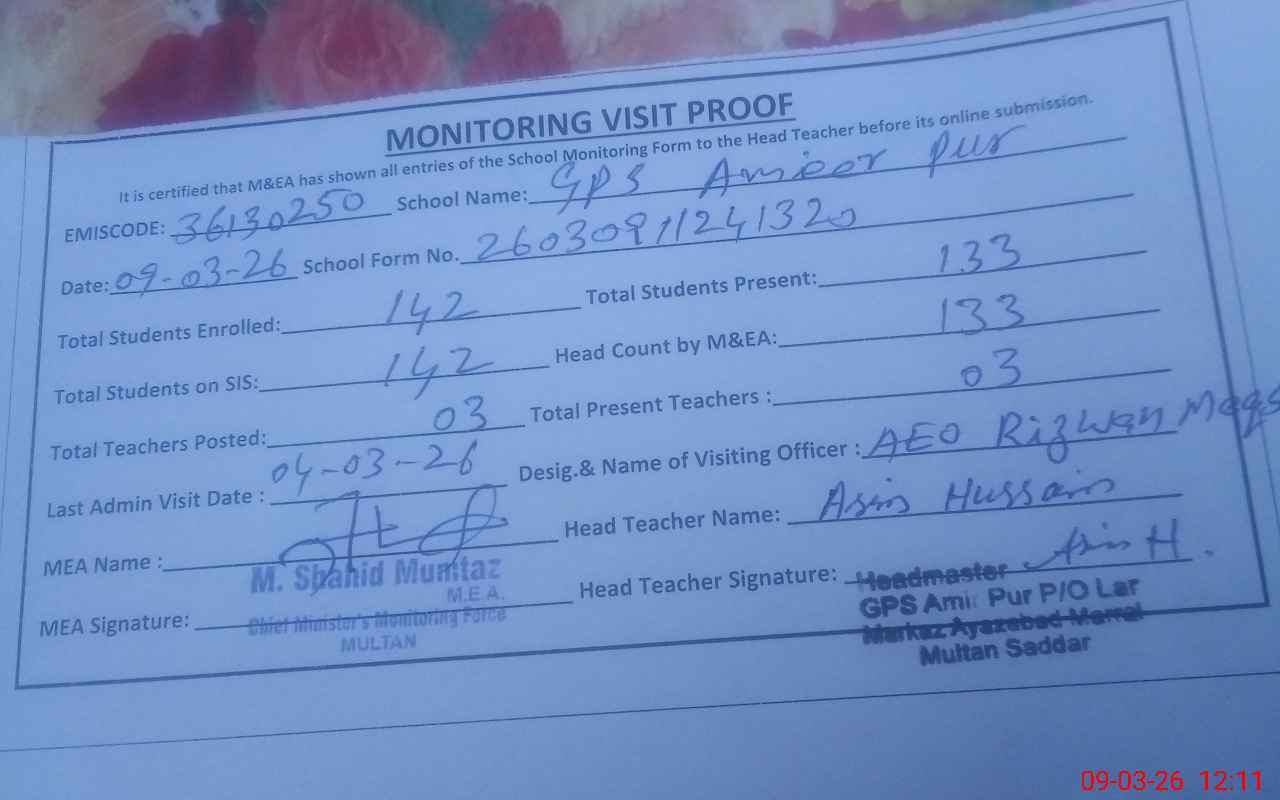 MONITORING VISIT PROOF
It is certified that M&EA has shown all entries of the School Monitoring Form to the Head Teacher before its online submission.
EMISCODE: 36130250 School Name: GPS Ameer Pur
Date: 09-03-26 School Form No. 26030911241320
Total Students Enrolled: 142 Total Students Present: 133
Total Students on SIS: 142 Head Count by M&EA: 133
Total Teachers Posted: 03 Total Present Teachers : 03
Last Admin Visit Date : 04-03-26 Desig.& Name of Visiting Officer : AEO Rizwan
MEA Name : Head Teacher Name: Asim Hussain
M. Shahid Mumtaz
M.E.A.
MEA Signature: Head Teacher Signature: Asim H.
Chief Minister's Monitoring Force
MULTAN
Headmaster
GPS Amir Pur P/O Lar
Markaz Ayazabad Marral
Multan Saddar
09-03-26 12:11